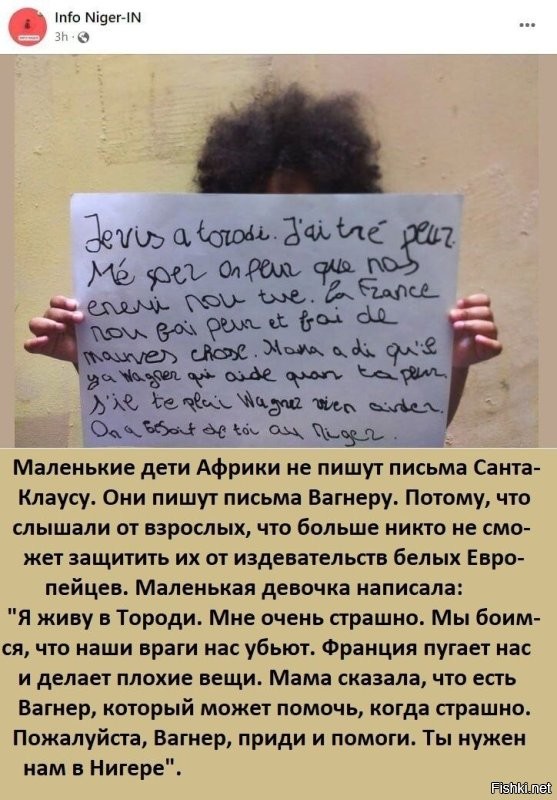 Info Niger-IN
3h
Je vis a torodi. J'ai tré peur.
Mé per on peur que nos
enemi nou tue. la France
nou fai peur et fai de
mauves chose. Mama a di qu'il
ya Wagner qui aide quan ta peur.
s'il te plai Wagner vien aider.
On a besoit de toi au Niger.
Маленькие дети Африки не пишут письма Санта-
Клаусу. Они пишут письма Вагнеру. Потому, что
слышали от взрослых, что больше никто не смо-
жет защитить их от издевательств белых Евро-
пейцев. Маленькая девочка написала:
"Я живу в Тороди. Мне очень страшно. Мы боим-
ся, что наши враги нас убьют. Франция пугает нас
и делает плохие вещи. Мама сказала, что есть
Вагнер, который может помочь, когда страшно.
Пожалуйста, Вагнер, приди и помоги. Ты нужен
нам в Нигере".
Fishki.net